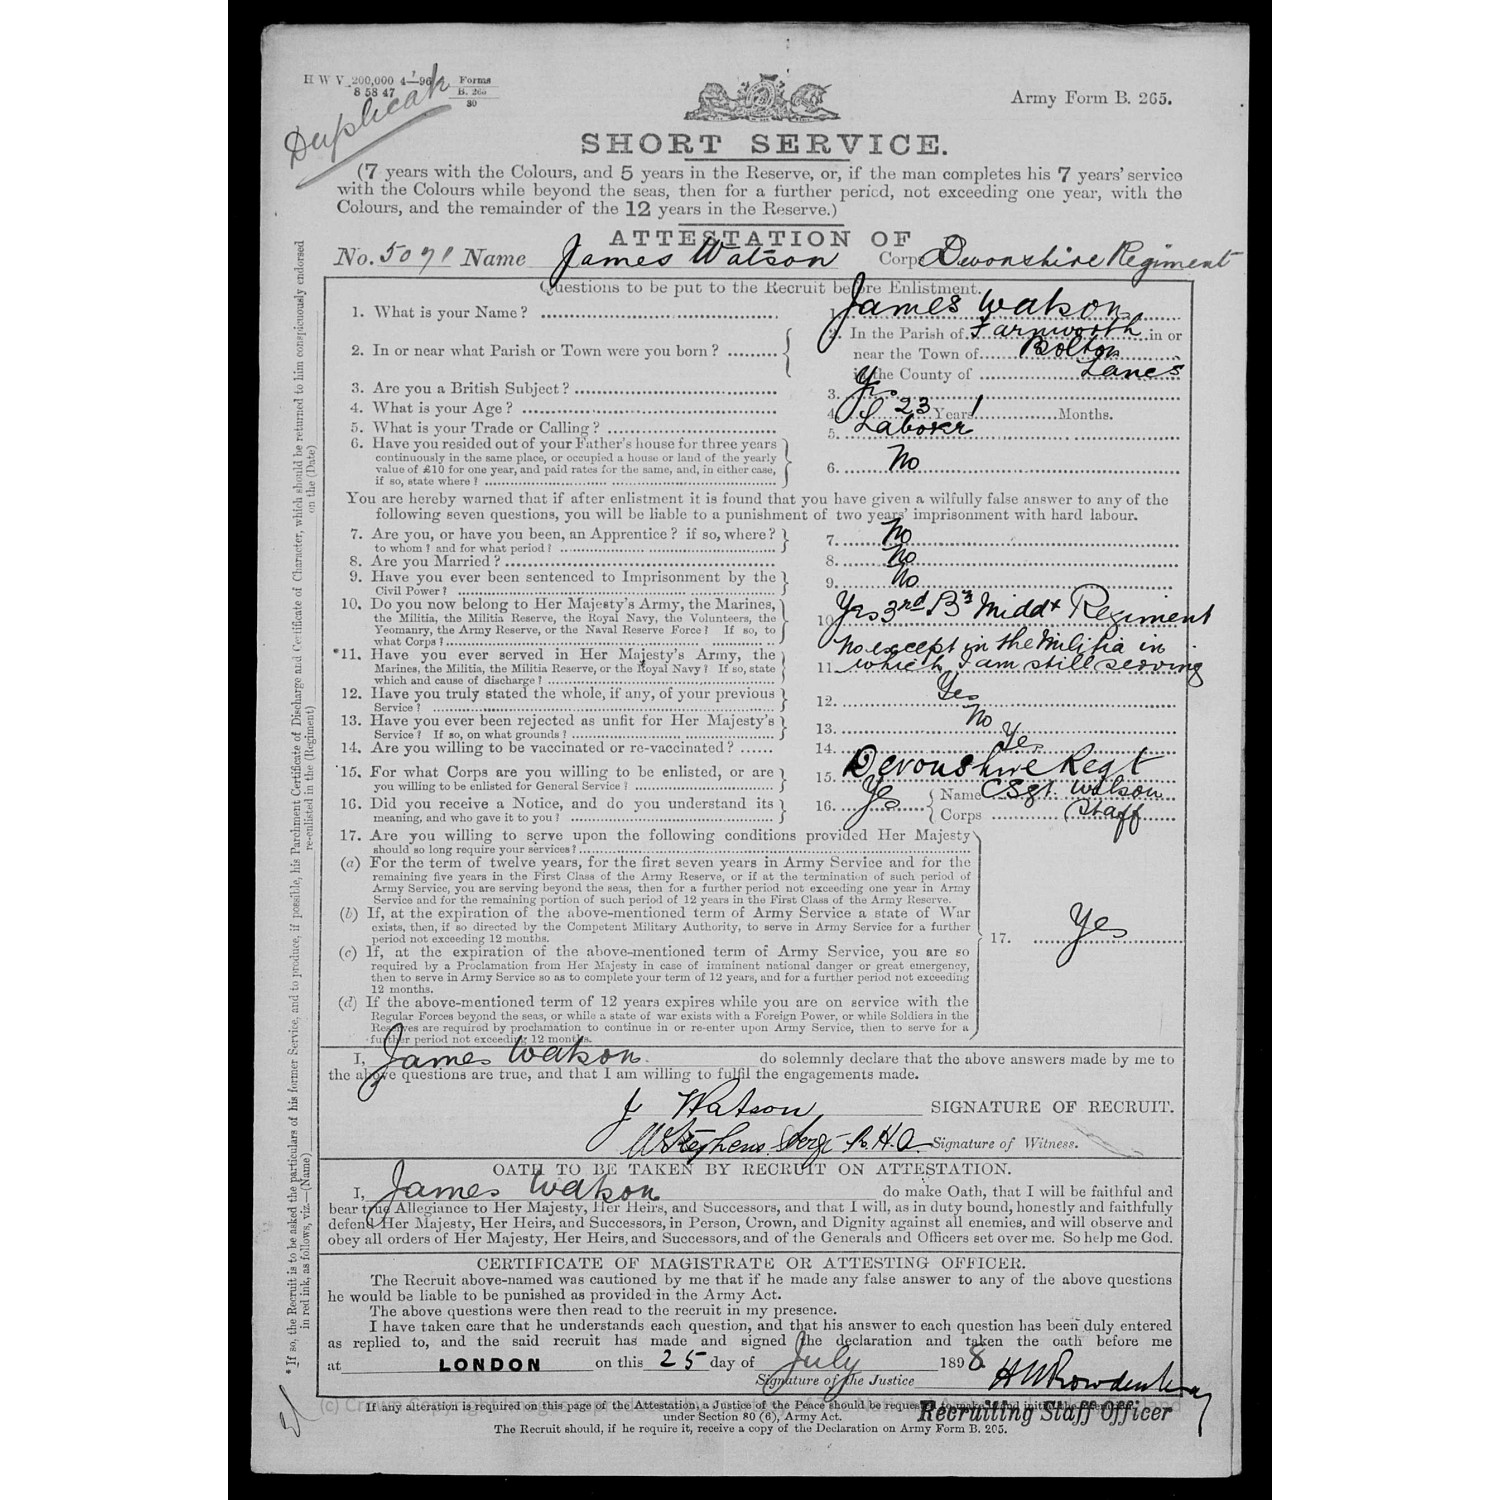 H W V 200,000 4—96 Forms
8 58 47 B. 265
80
Duplicate
Army Form B. 265.
SHORT SERVICE.
(7 years with the Colours, and 5 years in the Reserve, or, if the man completes his 7 years' service
with the Colours while beyond the seas, then for a further period, not exceeding one year, with the
Colours, and the remainder of the 12 years in the Reserve.)
ATTESTATION OF
No. 5091 Name James Watson Corps Devonshire Regiment
Questions to be put to the Recruit before Enlistment.
1. What is your Name? 1. James Watson
2. In or near what Parish or Town were you born? 2. In the Parish of Farnworth in or
near the Town of Bolton
in the County of Lancs
3. Are you a British Subject? 3. Yes
4. What is your Age? 4. 23 Years 1 Months.
5. What is your Trade or Calling? 5. Laborer
6. Have you resided out of your Father's house for three years
continuously in the same place, or occupied a house or land of the yearly
value of £10 for one year, and paid rates for the same, and, in either case,
if so, state where? 6. No
You are hereby warned that if after enlistment it is found that you have given a wilfully false answer to any of the
following seven questions, you will be liable to a punishment of two years' imprisonment with hard labour.
7. Are you, or have you been, an Apprentice? if so, where?
to whom? and for what period? 7. No
8. Are you Married? 8. No
9. Have you ever been sentenced to Imprisonment by the
Civil Power? 9. No
10. Do you now belong to Her Majesty's Army, the Marines,
the Militia, the Militia Reserve, the Royal Navy, the Volunteers, the
Yeomanry, the Army Reserve, or the Naval Reserve Force? If so, to
what Corps? 10. Yes 3rd Bn Middx Regiment
*11. Have you ever served in Her Majesty's Army, the
Marines, the Militia, the Militia Reserve, or the Royal Navy? If so, state
which and cause of discharge? 11. No except in the Militia in
which I am still serving
12. Have you truly stated the whole, if any, of your previous
Service? 12. Yes
13. Have you ever been rejected as unfit for Her Majesty's
Service? If so, on what grounds? 13. No
14. Are you willing to be vaccinated or re-vaccinated? 14. Yes
15. For what Corps are you willing to be enlisted, or are
you willing to be enlisted for General Service? 15. Devonshire Regt
16. Did you receive a Notice, and do you understand its
meaning, and who gave it to you? 16. Yes Name C Sgt. Watson
Corps Staff
17. Are you willing to serve upon the following conditions provided Her Majesty
should so long require your services?
(a) For the term of twelve years, for the first seven years in Army Service and for the
remaining five years in the First Class of the Army Reserve, or if at the termination of such period of
Army Service, you are serving beyond the seas, then for a further period not exceeding one year in Army
Service and for the remaining portion of such period of 12 years in the First Class of the Army Reserve.
(b) If, at the expiration of the above-mentioned term of Army Service a state of War
exists, then, if so directed by the Competent Military Authority, to serve in Army Service for a further
period not exceeding 12 months.
(c) If, at the expiration of the above-mentioned term of Army Service, you are so
required by a Proclamation from Her Majesty in case of imminent national danger or great emergency,
then to serve in Army Service so as to complete your term of 12 years, and for a further period not exceeding
12 months.
(d) If the above-mentioned term of 12 years expires while you are on service with the
Regular Forces beyond the seas, or while a state of war exists with a Foreign Power, or while Soldiers in the
Reserves are required by proclamation to continue in or re-enter upon Army Service, then to serve for a
further period not exceeding 12 months.
17. Yes
I, James Watson do solemnly declare that the above answers made by me to
the above questions are true, and that I am willing to fulfil the engagements made.
J Watson SIGNATURE OF RECRUIT.
W Stephens Sergt R.H.A. Signature of Witness.
OATH TO BE TAKEN BY RECRUIT ON ATTESTATION.
I, James Watson do make Oath, that I will be faithful and
bear true Allegiance to Her Majesty, Her Heirs, and Successors, and that I will, as in duty bound, honestly and faithfully
defend Her Majesty, Her Heirs, and Successors, in Person, Crown, and Dignity against all enemies, and will observe and
obey all orders of Her Majesty, Her Heirs, and Successors, and of the Generals and Officers set over me. So help me God.
CERTIFICATE OF MAGISTRATE OR ATTESTING OFFICER.
The Recruit above-named was cautioned by me that if he made any false answer to any of the above questions
he would be liable to be punished as provided in the Army Act.
The above questions were then read to the recruit in my presence.
I have taken care that he understands each question, and that his answer to each question has been duly entered
as replied to, and the said recruit has made and signed the declaration and taken the oath before me
at LONDON on this 25 day of July 1898
Signature of the Justice
Recruiting Staff Officer
If any alteration is required on this page of the Attestation, a Justice of the Peace should be requested to make it and initial the alteration
under Section 80 (6), Army Act.
The Recruit should, if he require it, receive a copy of the Declaration on Army Form B. 265.
* If so, the Recruit is to be asked the particulars of his former Service, and to produce, if possible, his Parchment Certificate of Discharge and Certificate of Character, which should be returned to him conspicuously endorsed
in red ink, as follows, viz.—(Name) re-enlisted in the (Regiment) on the (Date)